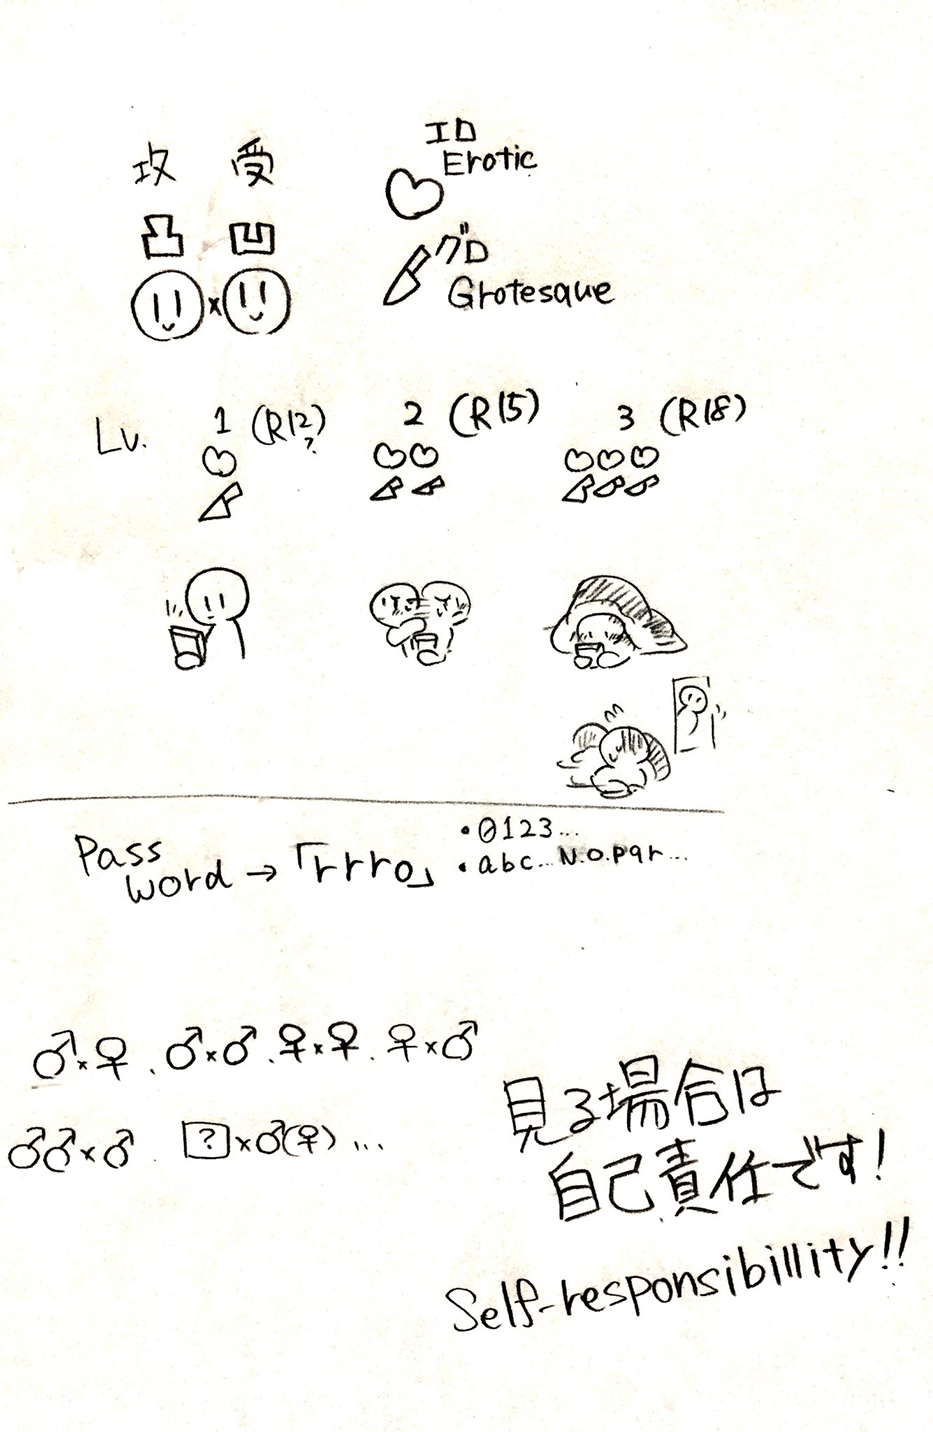 攻 受
凸 凹
×
エロ
Erotic
グロ
Grotesque
Lv. 1 (R12?) 2 (R15) 3 (R18)
Pass
word → 「rrro」
・0123...
・abc...N.O.pqr...
♂×♀.♂×♂.♀×♀.♀×♂
♂♂×♂. ?×♂(♀)...
見る場合は
自己責任です!
Self-responsibillity!!